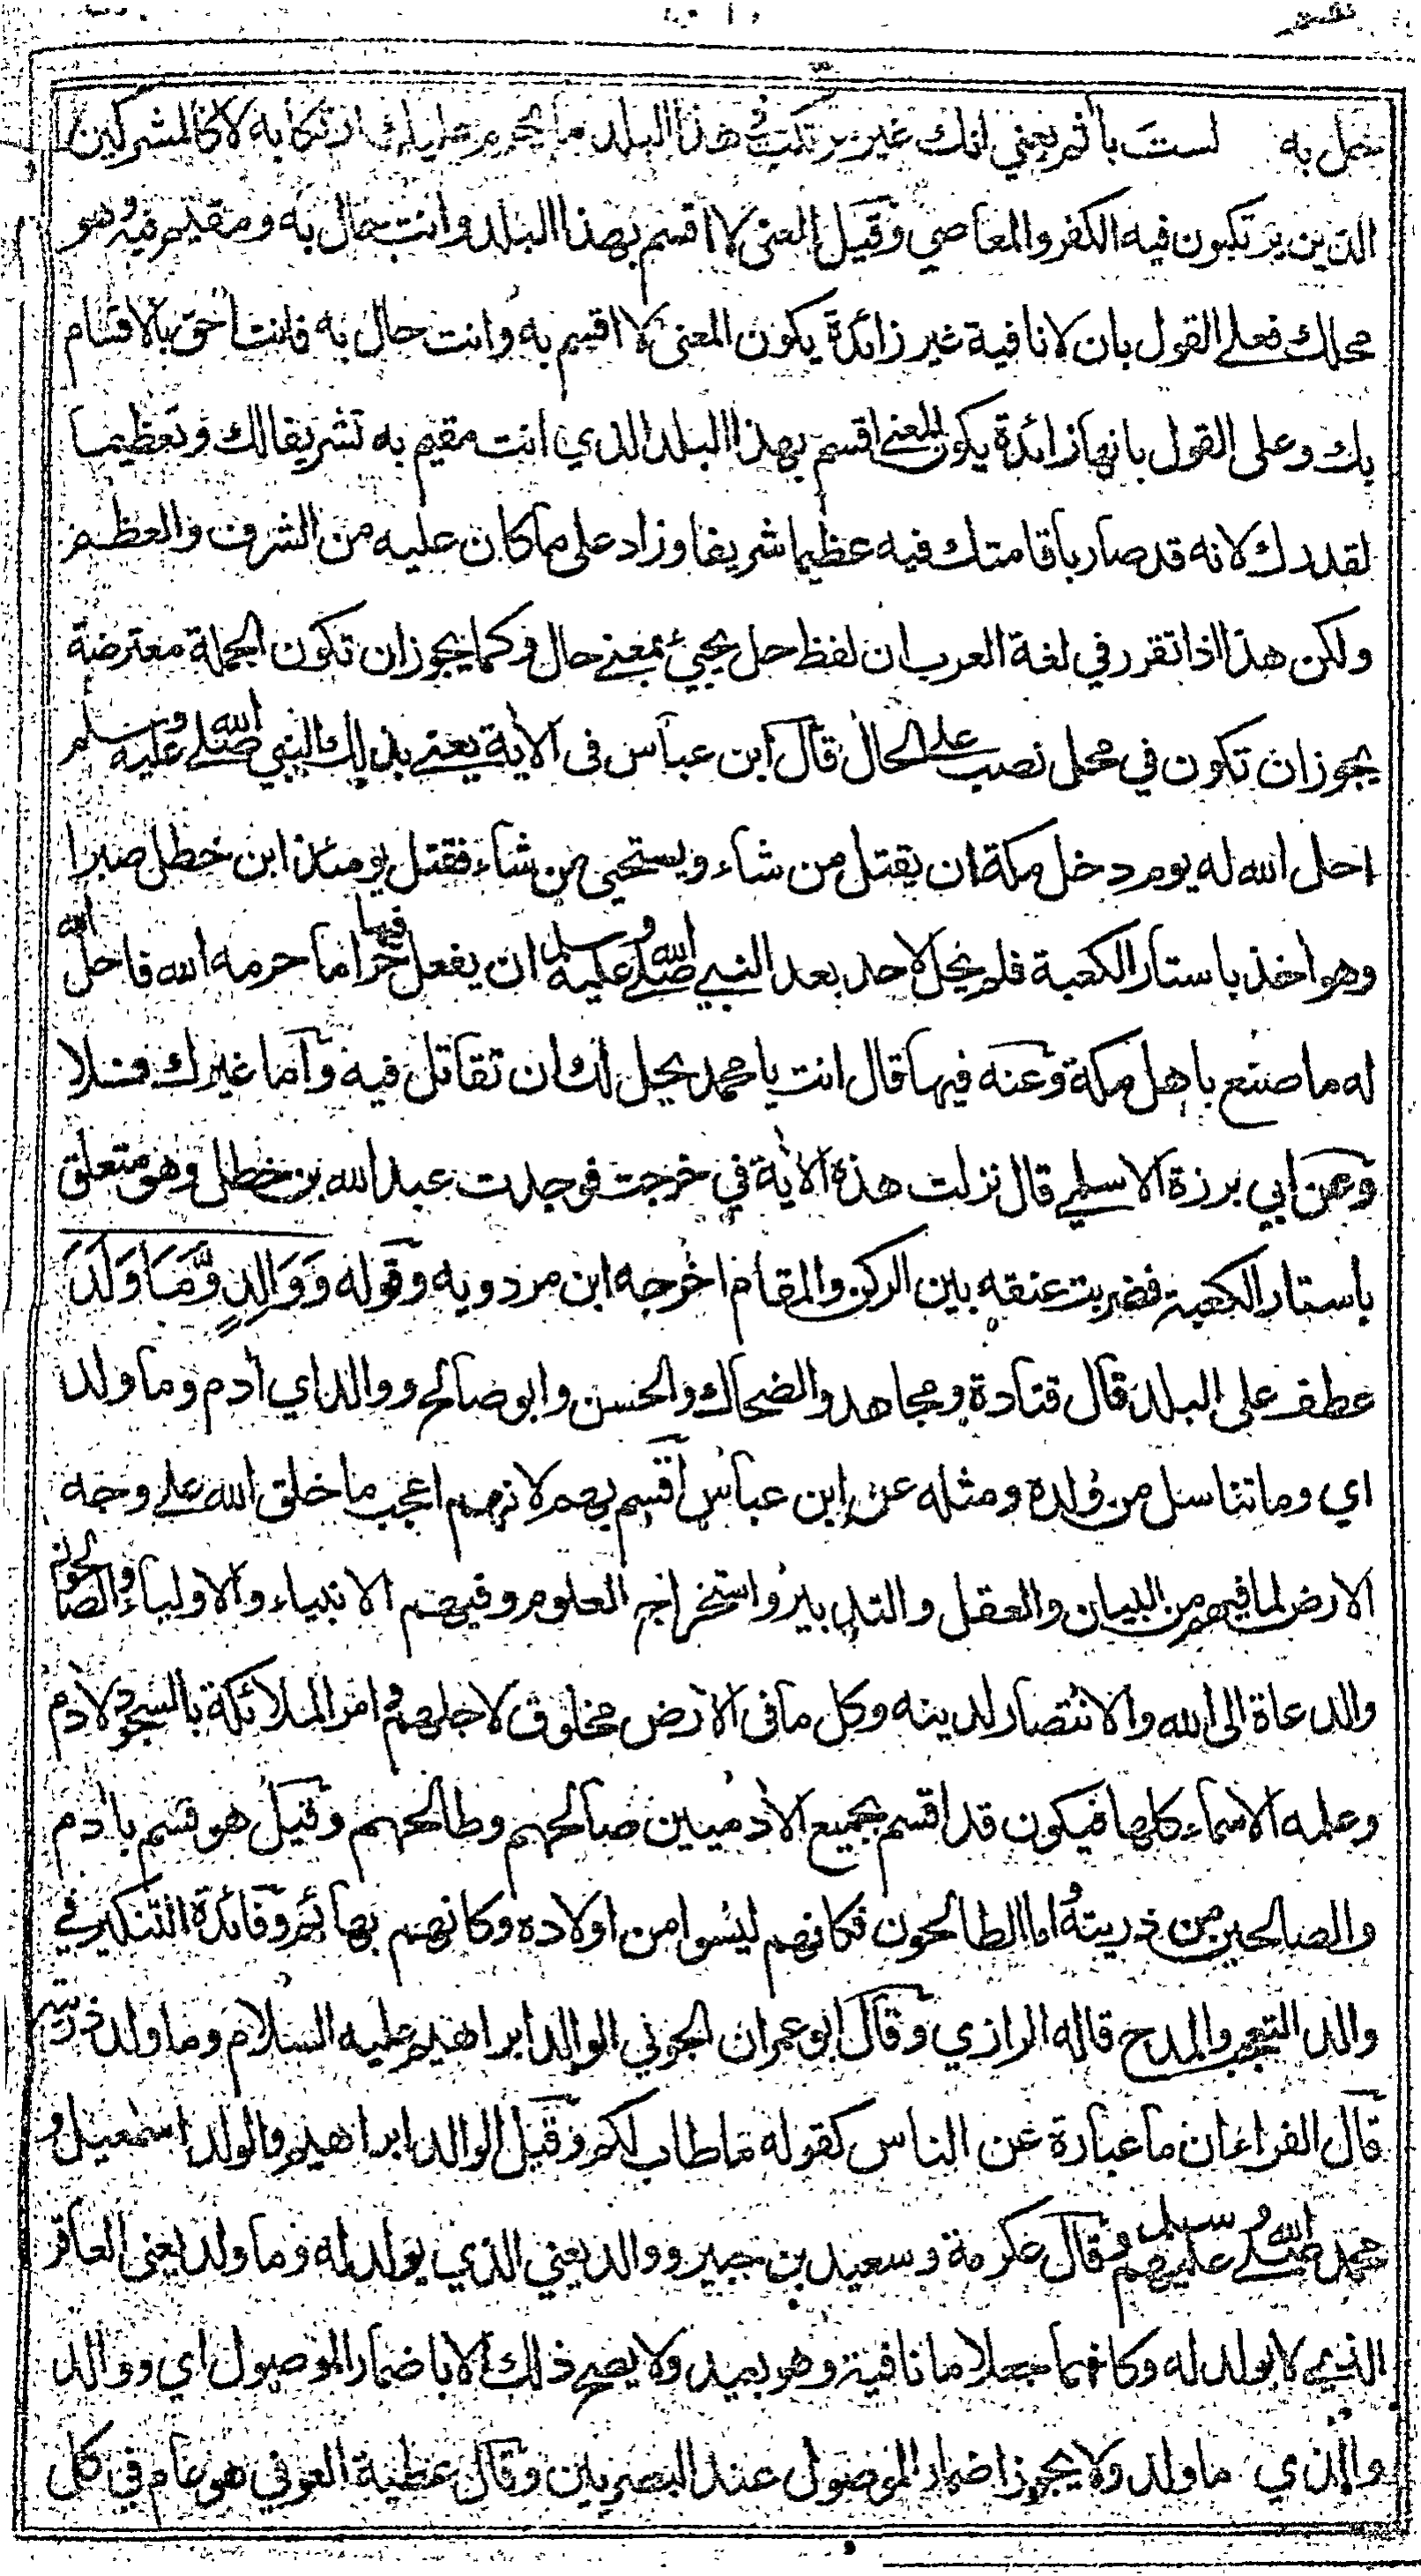 تحمل به لست بآثم يعني انك غير مرتكب في هذا البلد ما يحرم عليك ارتكابه لا كالمشركين
الذين يرتكبون فيه الكفر والمعاصي وقيل المعنى لا اقسم بهذا البلد وانت حال به ومقيم فيه وهو
محلك فعلى القول بان لا نافية غير زائدة يكون المعنى لا اقسم به وانت حال به فانت احق بالاقسام
بك وعلى القول بانها زائدة يكون المعنى اقسم بهذا البلد الذي انت مقيم به تشريفا لك وتعظيما
لقدرك لانه قد صار باقامتك فيه عظيما شريفا وزاد على ما كان عليه من الشرف والعظم
ولكن هذا اذا تقرر في لغة العرب ان لفظ حل يجيئ بمعنى حال وكما يجوز ان تكون الجملة معترضة
يجوز ان تكون في محل نصب على الحال قال ابن عباس فى الآية يعني بذلك النبي صلى الله عليه وسلم
احل الله له يوم دخل مكة ان يقتل من شاء ويستحيى من شاء فقتل يومئذ ابن خطل صبرا
وهو اخذ باستار الكعبة فلم يحل لاحد بعد النبي صلى الله عليه وسلم ان يفعل فيها حراما حرمه الله فاحل الله
له ما صنع باهل مكة وعنه فيها قال انت يا محمد يحل لك ان تقاتل فيه وأما غيرك فلا
وعن ابي برزة الاسلمي قال نزلت هذه الآية في خرجت فوجدت عبد الله بن خطل وهو متعلق
باستار الكعبة فضربت عنقه بين الركن والمقام اخرجه ابن مردويه وقوله وَوَالِدٍ وَّمَا وَلَدَ
عطف على البلد قال قتادة ومجاهد والضحاك والحسن وابو صالح ووالد اي آدم وما ولد
اي وما تناسل من ولده ومثله عن ابن عباس أقسم بهم لانهم اعجب ما خلق الله على وجه
الارض لما فيهم من البيان والعقل والتدبير واستخراج العلوم وفيهم الانبياء والاولياء والصالحون
والدعاة الى الله والانتصار لدينه وكل ما فى الارض مخلوق لاجلهم وامر الملائكة بالسجود لآدم
وعلمه الاسماء كلها فيكون قد اقسم بجميع الآدميين صالحهم وطالحهم وقيل هو قسم بآدم
والصالحين من ذريته واما الطالحون فكانهم ليسوا من اولاده وكانهم بهائم وفائدة التنكير في
والد التعجب والمدح قاله الرازي وقال ابو عمران الجوني الوالد ابراهيم عليه السلام وما ولد ذريته
قال الفراء ان ما عبارة عن الناس كقوله ما طاب لكم وقيل الوالد ابراهيم والولد اسمعيل و
محمد صلى الله عليهم وسلم وقال عكرمة وسعيد بن جبير ووالد يعني الذي يولد له وما ولد يعني العاقر
الذي لا يولد له وكانهما جعلا ما نافية وهو بعيد ولا يصح ذلك الا باضمار الموصول اي ووالد
والذي ما ولد ولا يجوز اضمار الموصول عند البصريين وقال عطية العوفي هو عام في كل